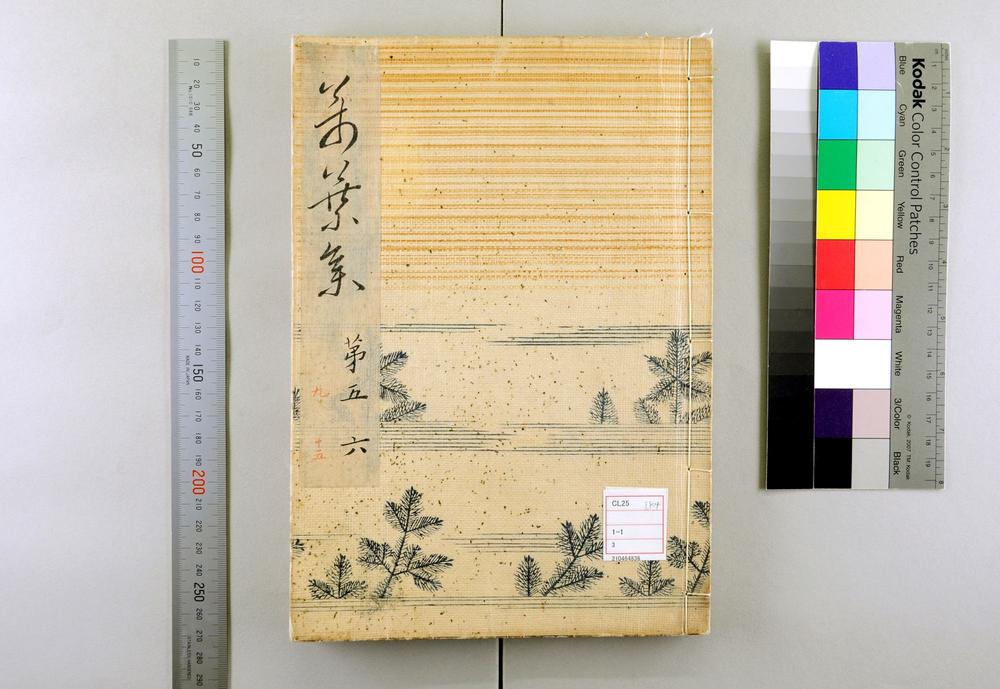 萬葉集
第五 六
九 十五
CL25
1-1
3
210464836
10
20
30
40
50
60
70
80
90
100
110
120
130
140
150
160
170
180
190
200
210
220
230
240
250
260
270
280
290
MADE IN JAPAN
Kodak Color Control Patches
Blue
Cyan
Green
Yellow
Red
Magenta
White
3/Color
Black
© Kodak, 2007 TM: Kodak
1
2
3
4
5
6
7
8
9
10
11
12
13
14
15
16
17
18
19